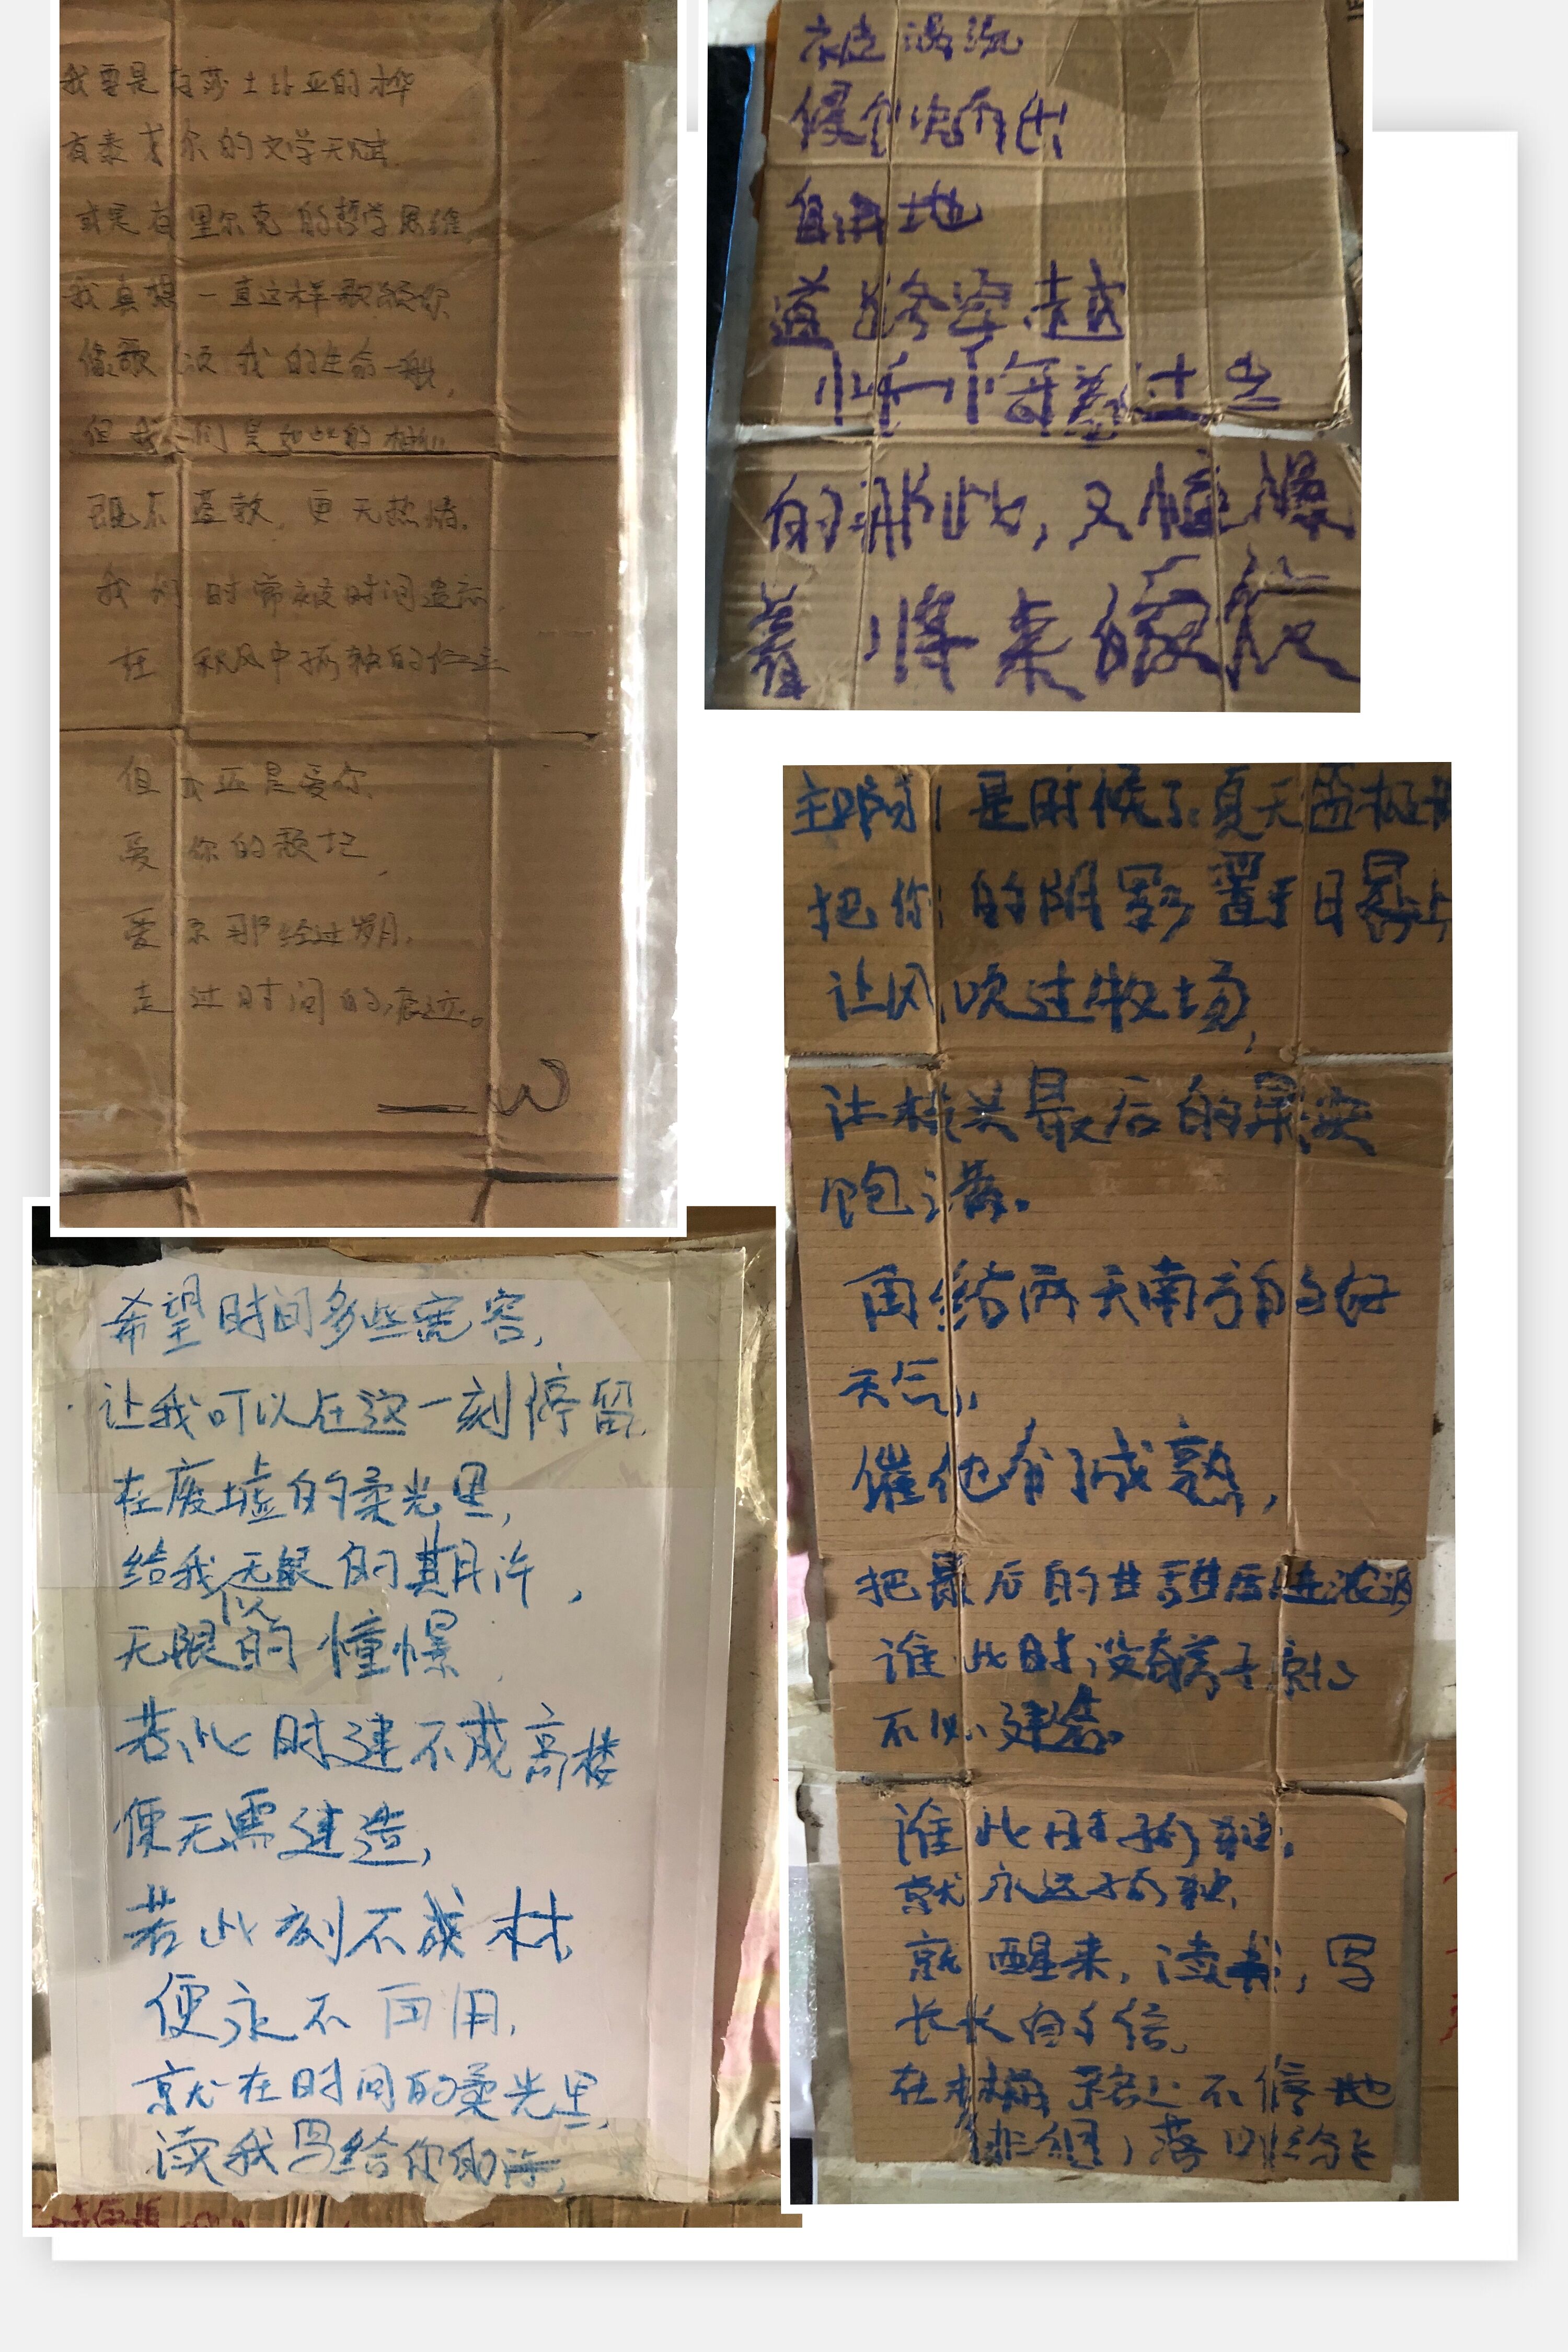 我要是有莎士比亚的才华
有泰戈尔的文学天赋,
或是有里尔克的哲学思维,
我真想一直这样歌颂你
像歌颂我的生命一般,
但我们是如此的相似
既不喜歌,更无热情,
我们时常被时间遗忘,
在秋风中孤独的伫立
但我还是爱你,
爱你的
爱你那经过岁月,
走过时间的痕迹。
—W
被涡流
侵蚀而出
自
道路穿越
小和小
的彼此,又憧憬
着将来的
希望时间多些宽容,
让我可以在这一刻停留,
在废墟的柔光里,
给我无限的期许,
无限的憧憬
若此时建不成高楼
便无需建造,
若此刻不成材,
便永不再用,
就在时间的柔光里,
读我写给你的诗,
主啊!是时候了,夏天盛极
把你的阴影置于日晷上
让风吹过牧场,
让枝头最后的果实
饱满。
再给两天南方的好
天气,
催他们成熟,
把最后的甘甜压进浓酒
谁此时没有房子,就
不必建造。
谁此时孤独,
就永远孤独,
就醒来,读书,写
长长的信,
在林荫路上不停地
徘徊,落叶纷飞